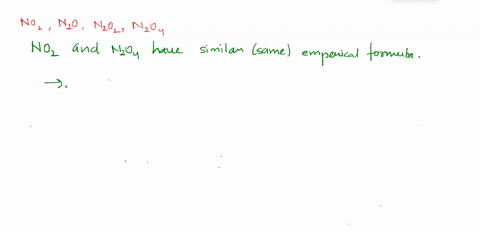 NO₂, N₂O, N₂O₂, N₂O₄
NO₂ and N₂O₄ have similar (same) emperical formula.
→